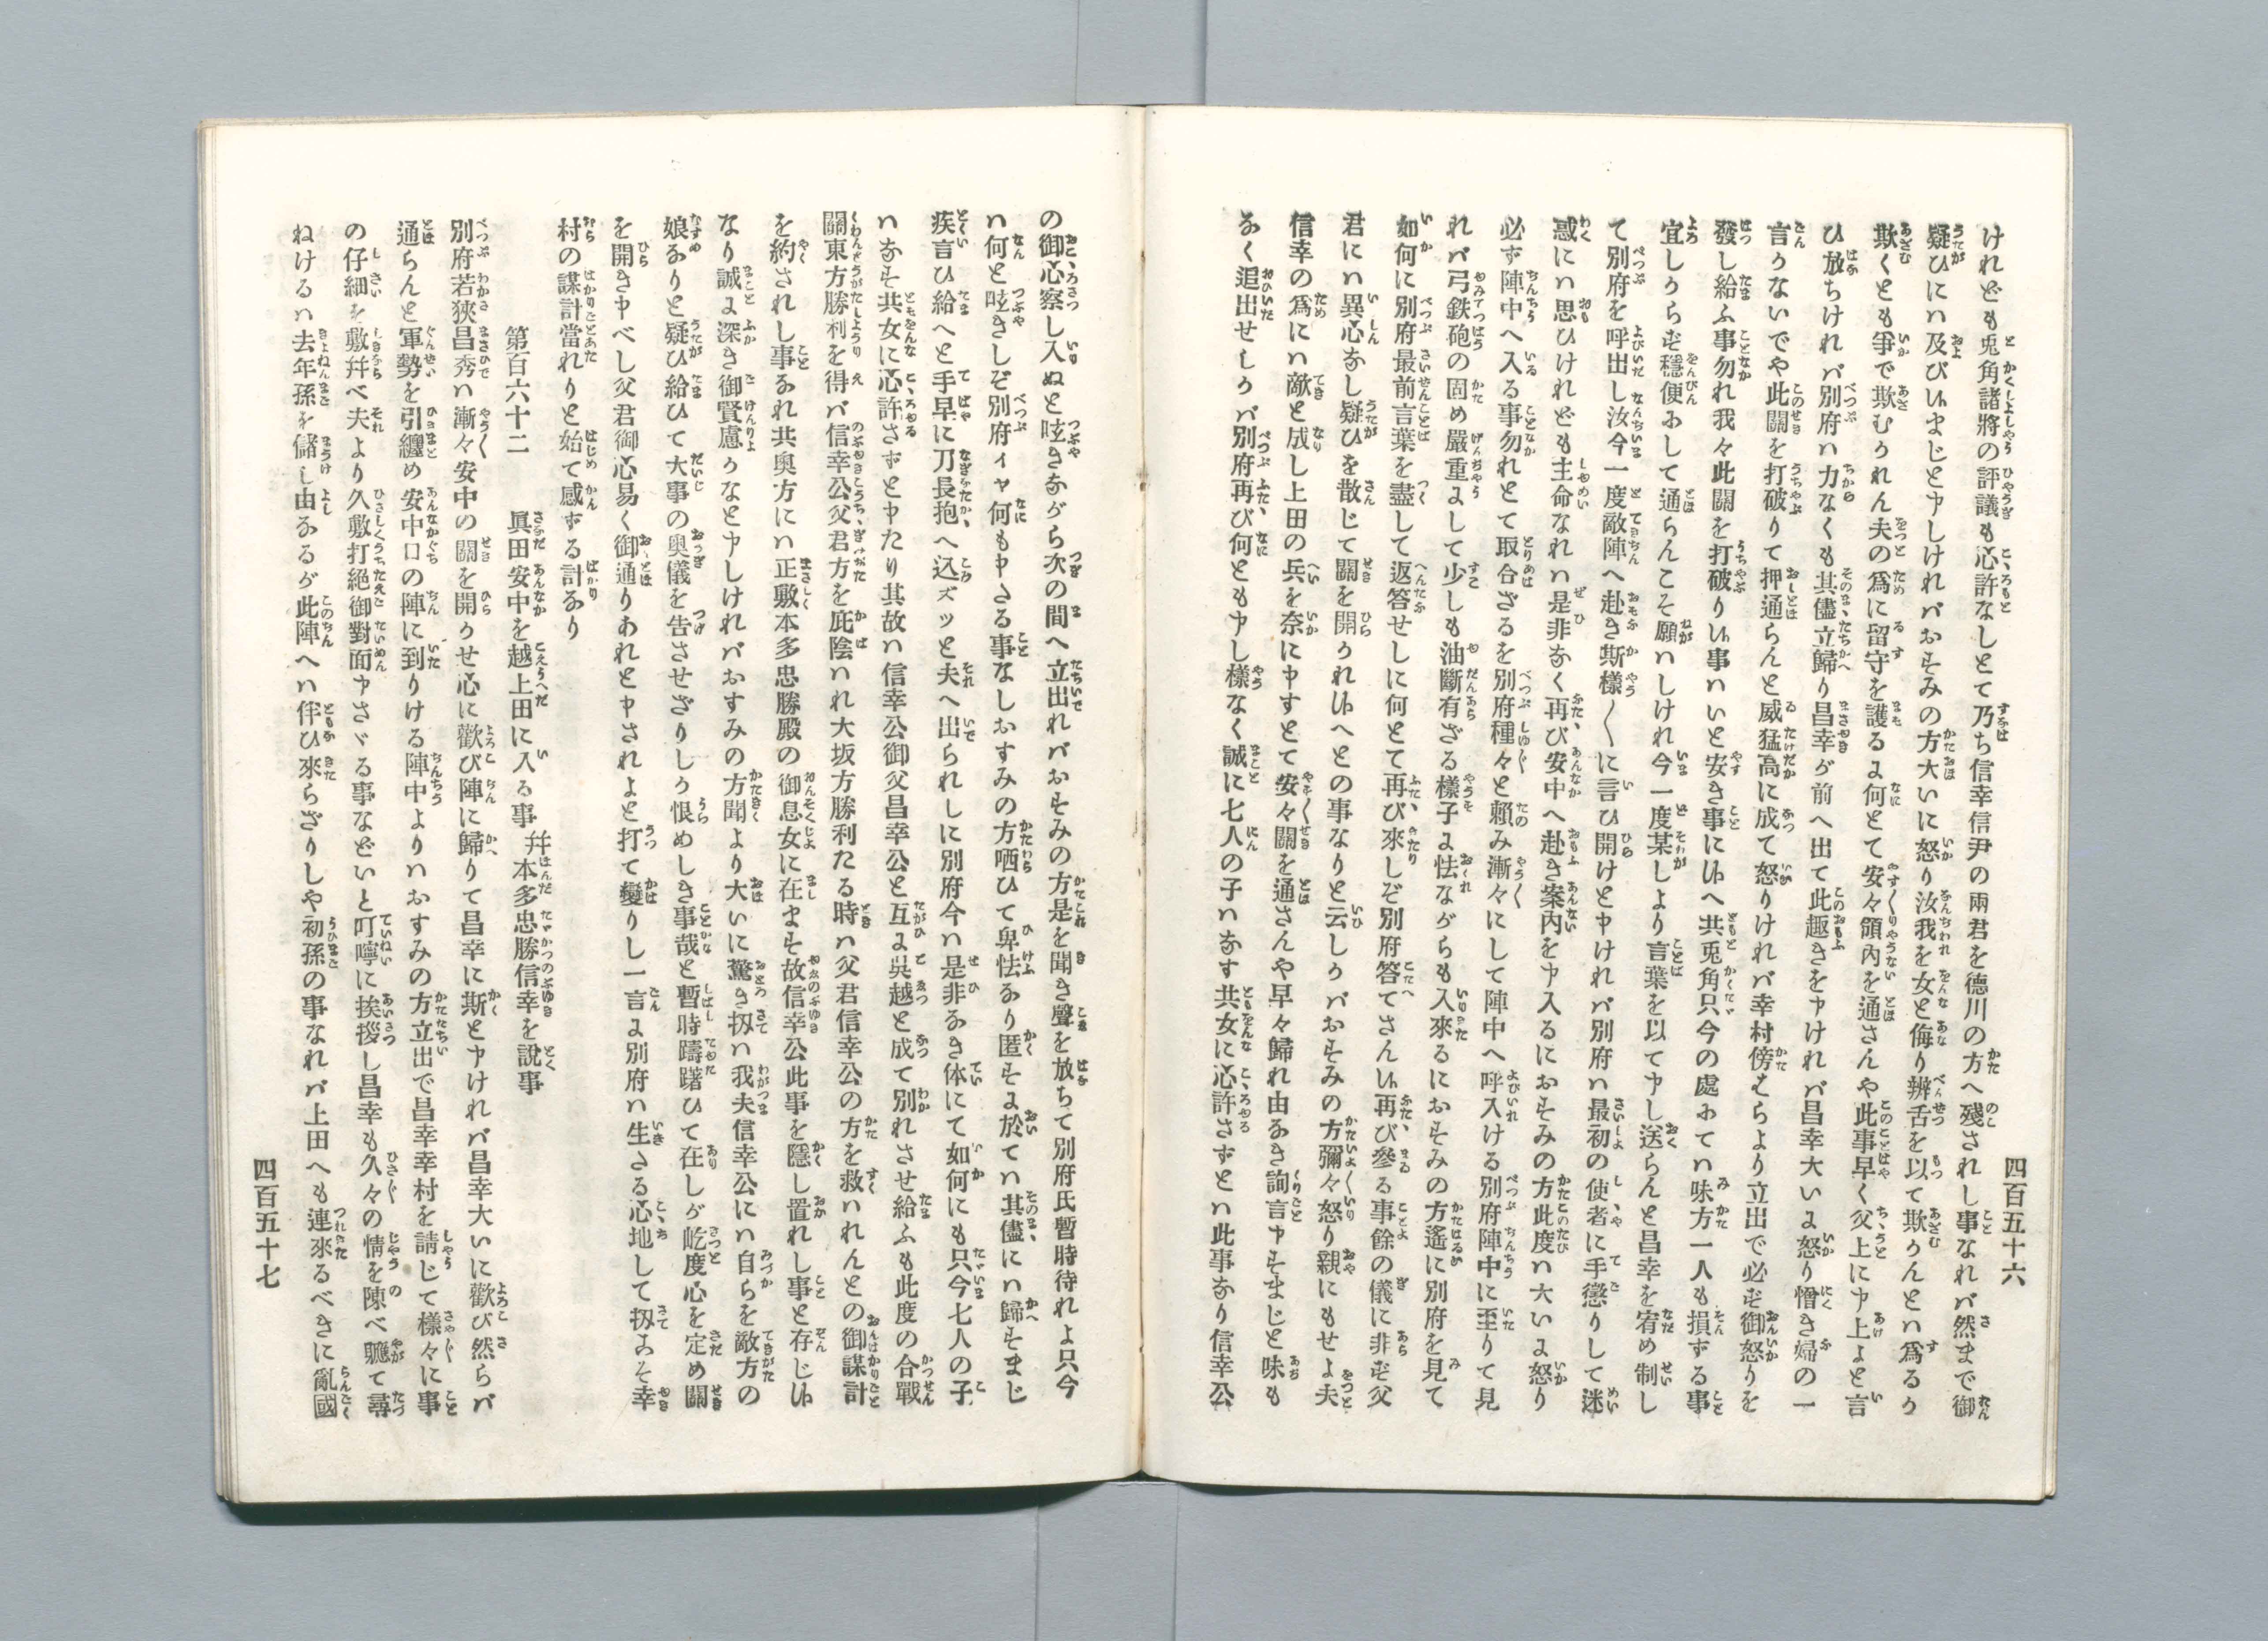 四百五十六
けれども兎角諸將の評議も心許なしとて乃ち信幸信尹の兩君を德川の方へ殘されし事なれバ然まで御
疑ひにハ及び申まじと申しけれバおすみの方大いに怒り汝我を女と侮り辨舌を以て欺かんとハ爲るか
欺くとも爭で欺むかれん夫の爲に留守を護るに何とて安々領內を通さんや此事早く父上に申上よと言
ひ放ちけれバ別府ハ力なくも其儘立歸り昌幸が前へ出て此趣きを申けれバ昌幸大いに怒り憎き婦の一
言かないでや此關を打破りて押通らんと威猛高に成て怒りけれバ幸村傍はらより立出で必ず御怒りを
發し給ふ事勿れ我々此關を打破り候事ハいと安き事に候へ共兎角只今の處おてハ味方一人も損ずる事
宜しからず穩便おして通らんこそ願ハしけれ今一度某しより言葉を以て申し送らんと昌幸を宥め制し
て別府を呼出し汝今一度敵陣へ赴き斯樣〳〵に言ひ開けと申けれバ別府ハ最初の使者に手懲りして迷
惑にハ思ひけれども主命なれハ是非なく再び安中へ赴き案內を申入るにおすみの方此度ハ大いに怒り
必ず陣中へ入る事勿れとて取合ざるを別府種々と賴み漸々にして陣中へ呼入ける別府陣中に至りて見
れバ弓鉄砲の固め嚴重にして少しも油斷有ざる樣子に怯ながらも入來るにおすみの方遙に別府を見て
如何に別府最前言葉を盡して返答せしに何とて再び來しぞ別府答てさん候再び參る事餘の儀に非ず父
君にハ異心なし疑ひを散じて關を開かれ候へとの事なりと云しかバおすみの方彌々怒り親にもせよ夫
信幸の爲にハ敵と成し上田の兵を奈に申すとて安々關を通さんや早々歸れ由なき詢言申すまじと味も
なく追出せしかバ別府再び何とも申し樣なく誠に七人の子ハなす共女に心許さずとハ此事なり信幸公
の御心察し入ぬと呟きながら次の間へ立出れバおすみの方是を聞き聲を放ちて別府氏暫時待れよ只今
ハ何と呟きしぞ別府イヤ何も申さる事なしおすみの方哂ひて卑怯なり匿すに於てハ其儘にハ歸すまじ
疾言ひ給へと手早に刀長抱へ込ズッと夫へ出られしに別府今ハ是非なき体にて如何にも只今七人の子
ハなすとも共女に心許さずと申たり其故ハ信幸公御父昌幸公と互に吳越と成て別れさせ給ふも此度の合戰
關東方勝利を得バ信幸公父君方を庇陰ハれ大坂方勝利たる時ハ父君信幸公の方を救ハれんとの御謀計
を約されし事なれ共奧方にハ正敷本多忠勝殿の御息女に在ます故信幸公此事を隱し置れし事と存じ候
なり誠に深き御賢慮かなと申しけれバおすみの方聞より大いに驚き扨ハ我夫信幸公にハ自らを敵方の
娘なりと疑ひ給ひて大事の奧儀を告させざりしか恨めしき事哉と暫時躊躇ひて在しが屹度心を定め關
を開き申べし父君御心易く御通りあれと申されよと打て變りし一言に別府ハ生さる心地して扨こそ幸
村の謀計當れりと始て感ずる計なり
第百六十二　眞田安中を越上田に入る事幷本多忠勝信幸を說事
別府若狹昌秀ハ漸々安中の關を開かせ心に歡び陣に歸りて昌幸に斯と申けれバ昌幸大いに歡び然らバ
通らんと軍勢を引纏め安中口の陣に到りける陣中よりハおすみの方立出で昌幸幸村を請じて樣々に事
の仔細を敷幷べ夫より久敷打絕御對面申さゞる事などいと叮嚀に挨拶し昌幸も久々の情を陳べ軈て尋
ねけるハ去年孫を儲し由なるが此陣へハ伴ひ來らざりしや初孫の事なれバ上田へも連來るべきに亂國
四百五十七